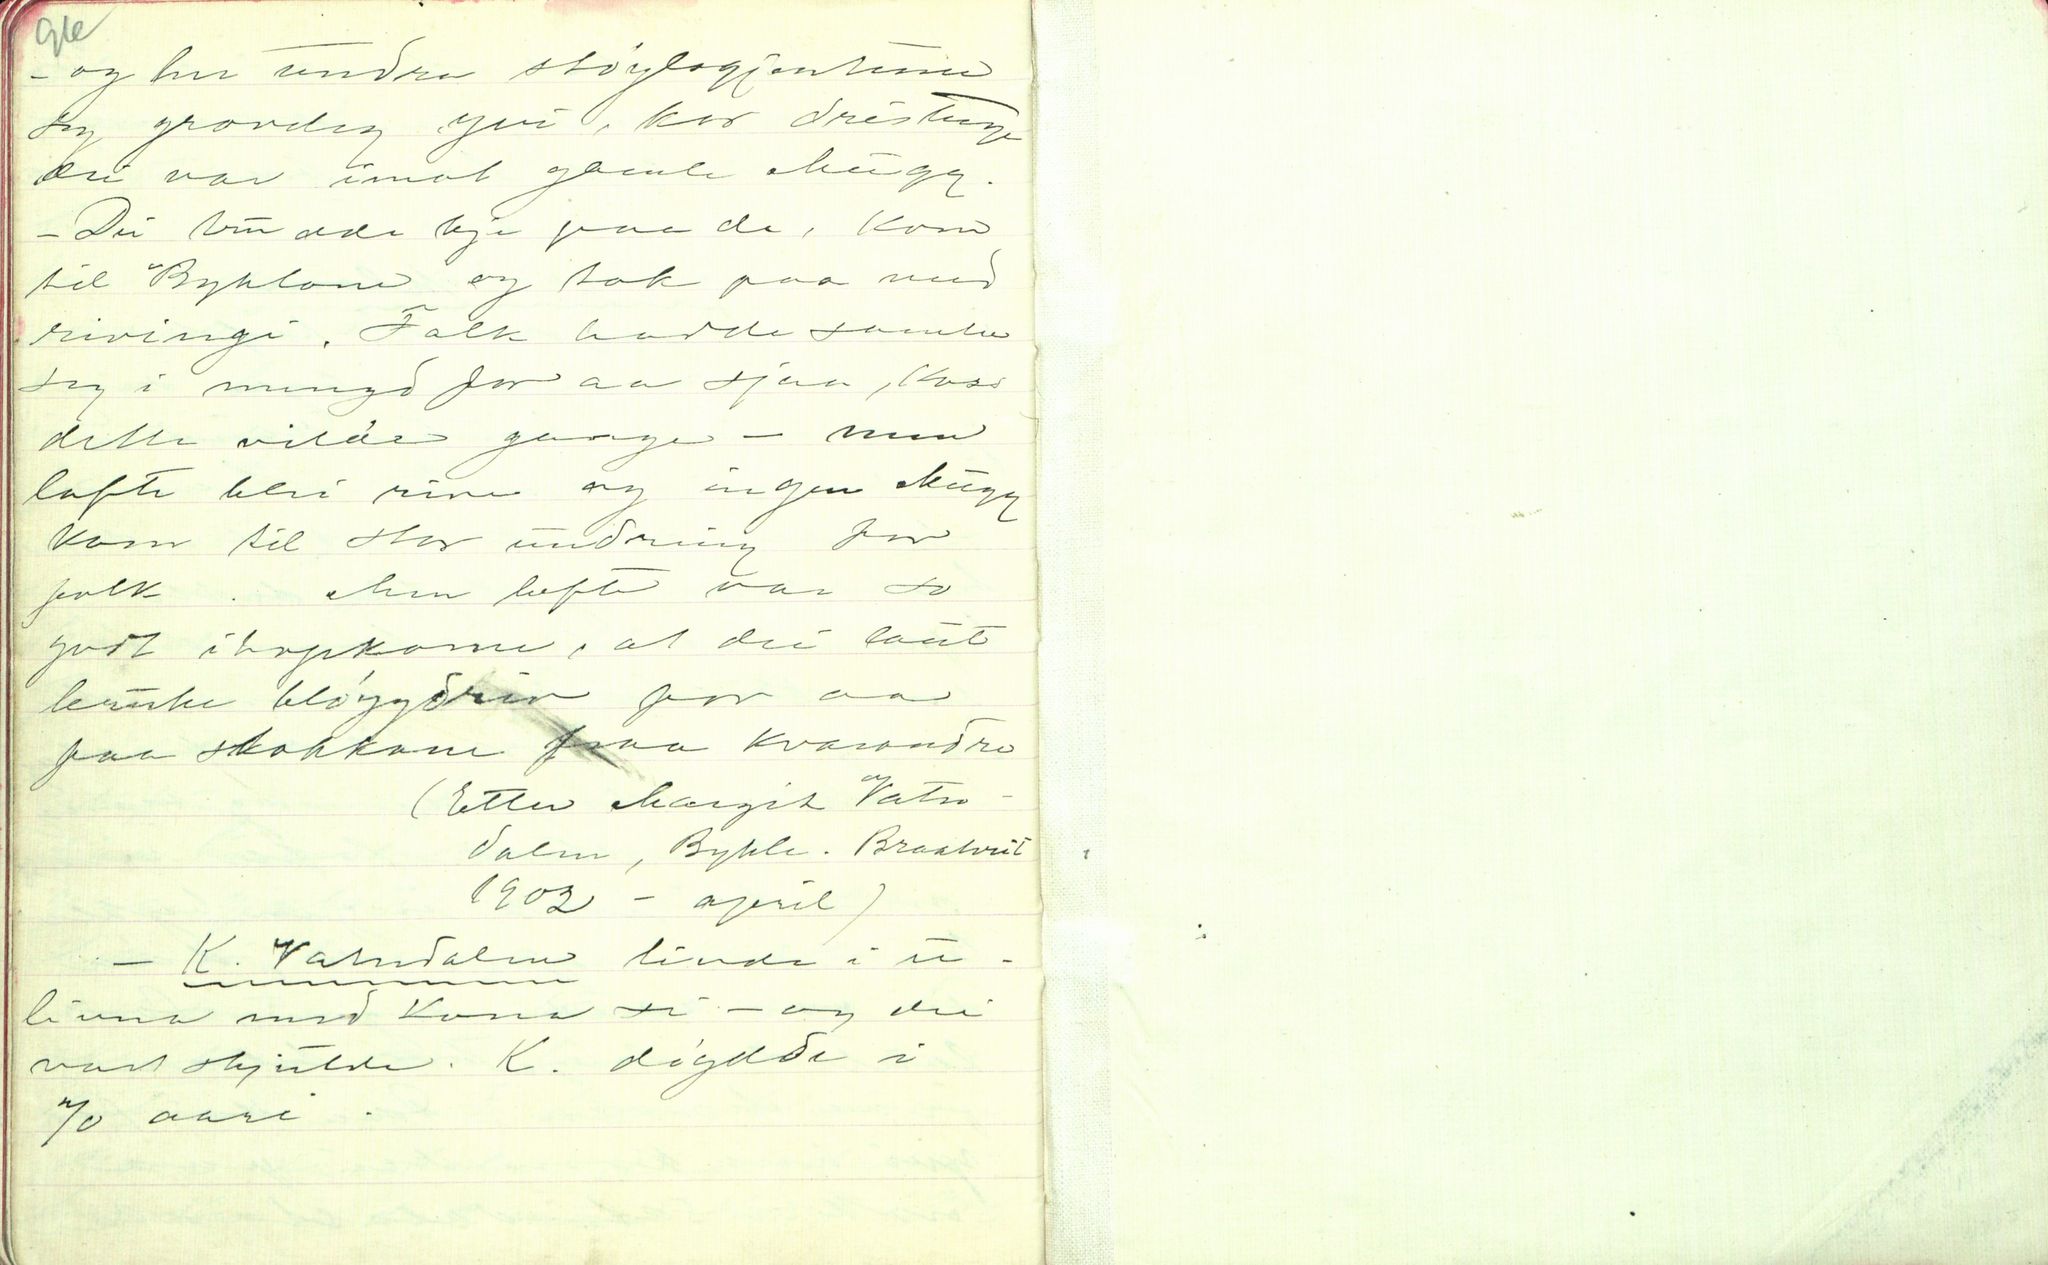 96
- og her undra støylsgjentune
seg grovleg yvi, kor dristuge
dei var imot gamle Mugg.
- Dei trudde kje paa de, kom
til Byklane og tok paa med
rivingi. Folk hadde samla
seg i mengd for aa sjaa, koss
dette vilde gange - men
lofte blei rive og ingen Mugg
kom til stor undring for
folk. Men lofte var so
godt ihopkome, at dei laut
bruke bløygdrir for aa
faa stokkane fraa kvarandre
(Etter Margit Vatn-
dalen, Bykle. Bratveit
1902 - april)
- K. Vatndalen livde i u-
livna med Kona si - og dei
vart skjilde. K. døydde i
70 aari.